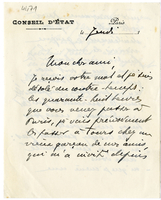 4579
CONSEIL D'ÉTAT
Paris
Jeudi
Mon cher ami,
Je reçois votre mot et je suis
désolé du contre-temps :
les quarante-huit heures
que vous venez passer à
Paris, je vais précisément
les passer à Tours chez un
vieux garçon de mes amis
qui m'a invité depuis